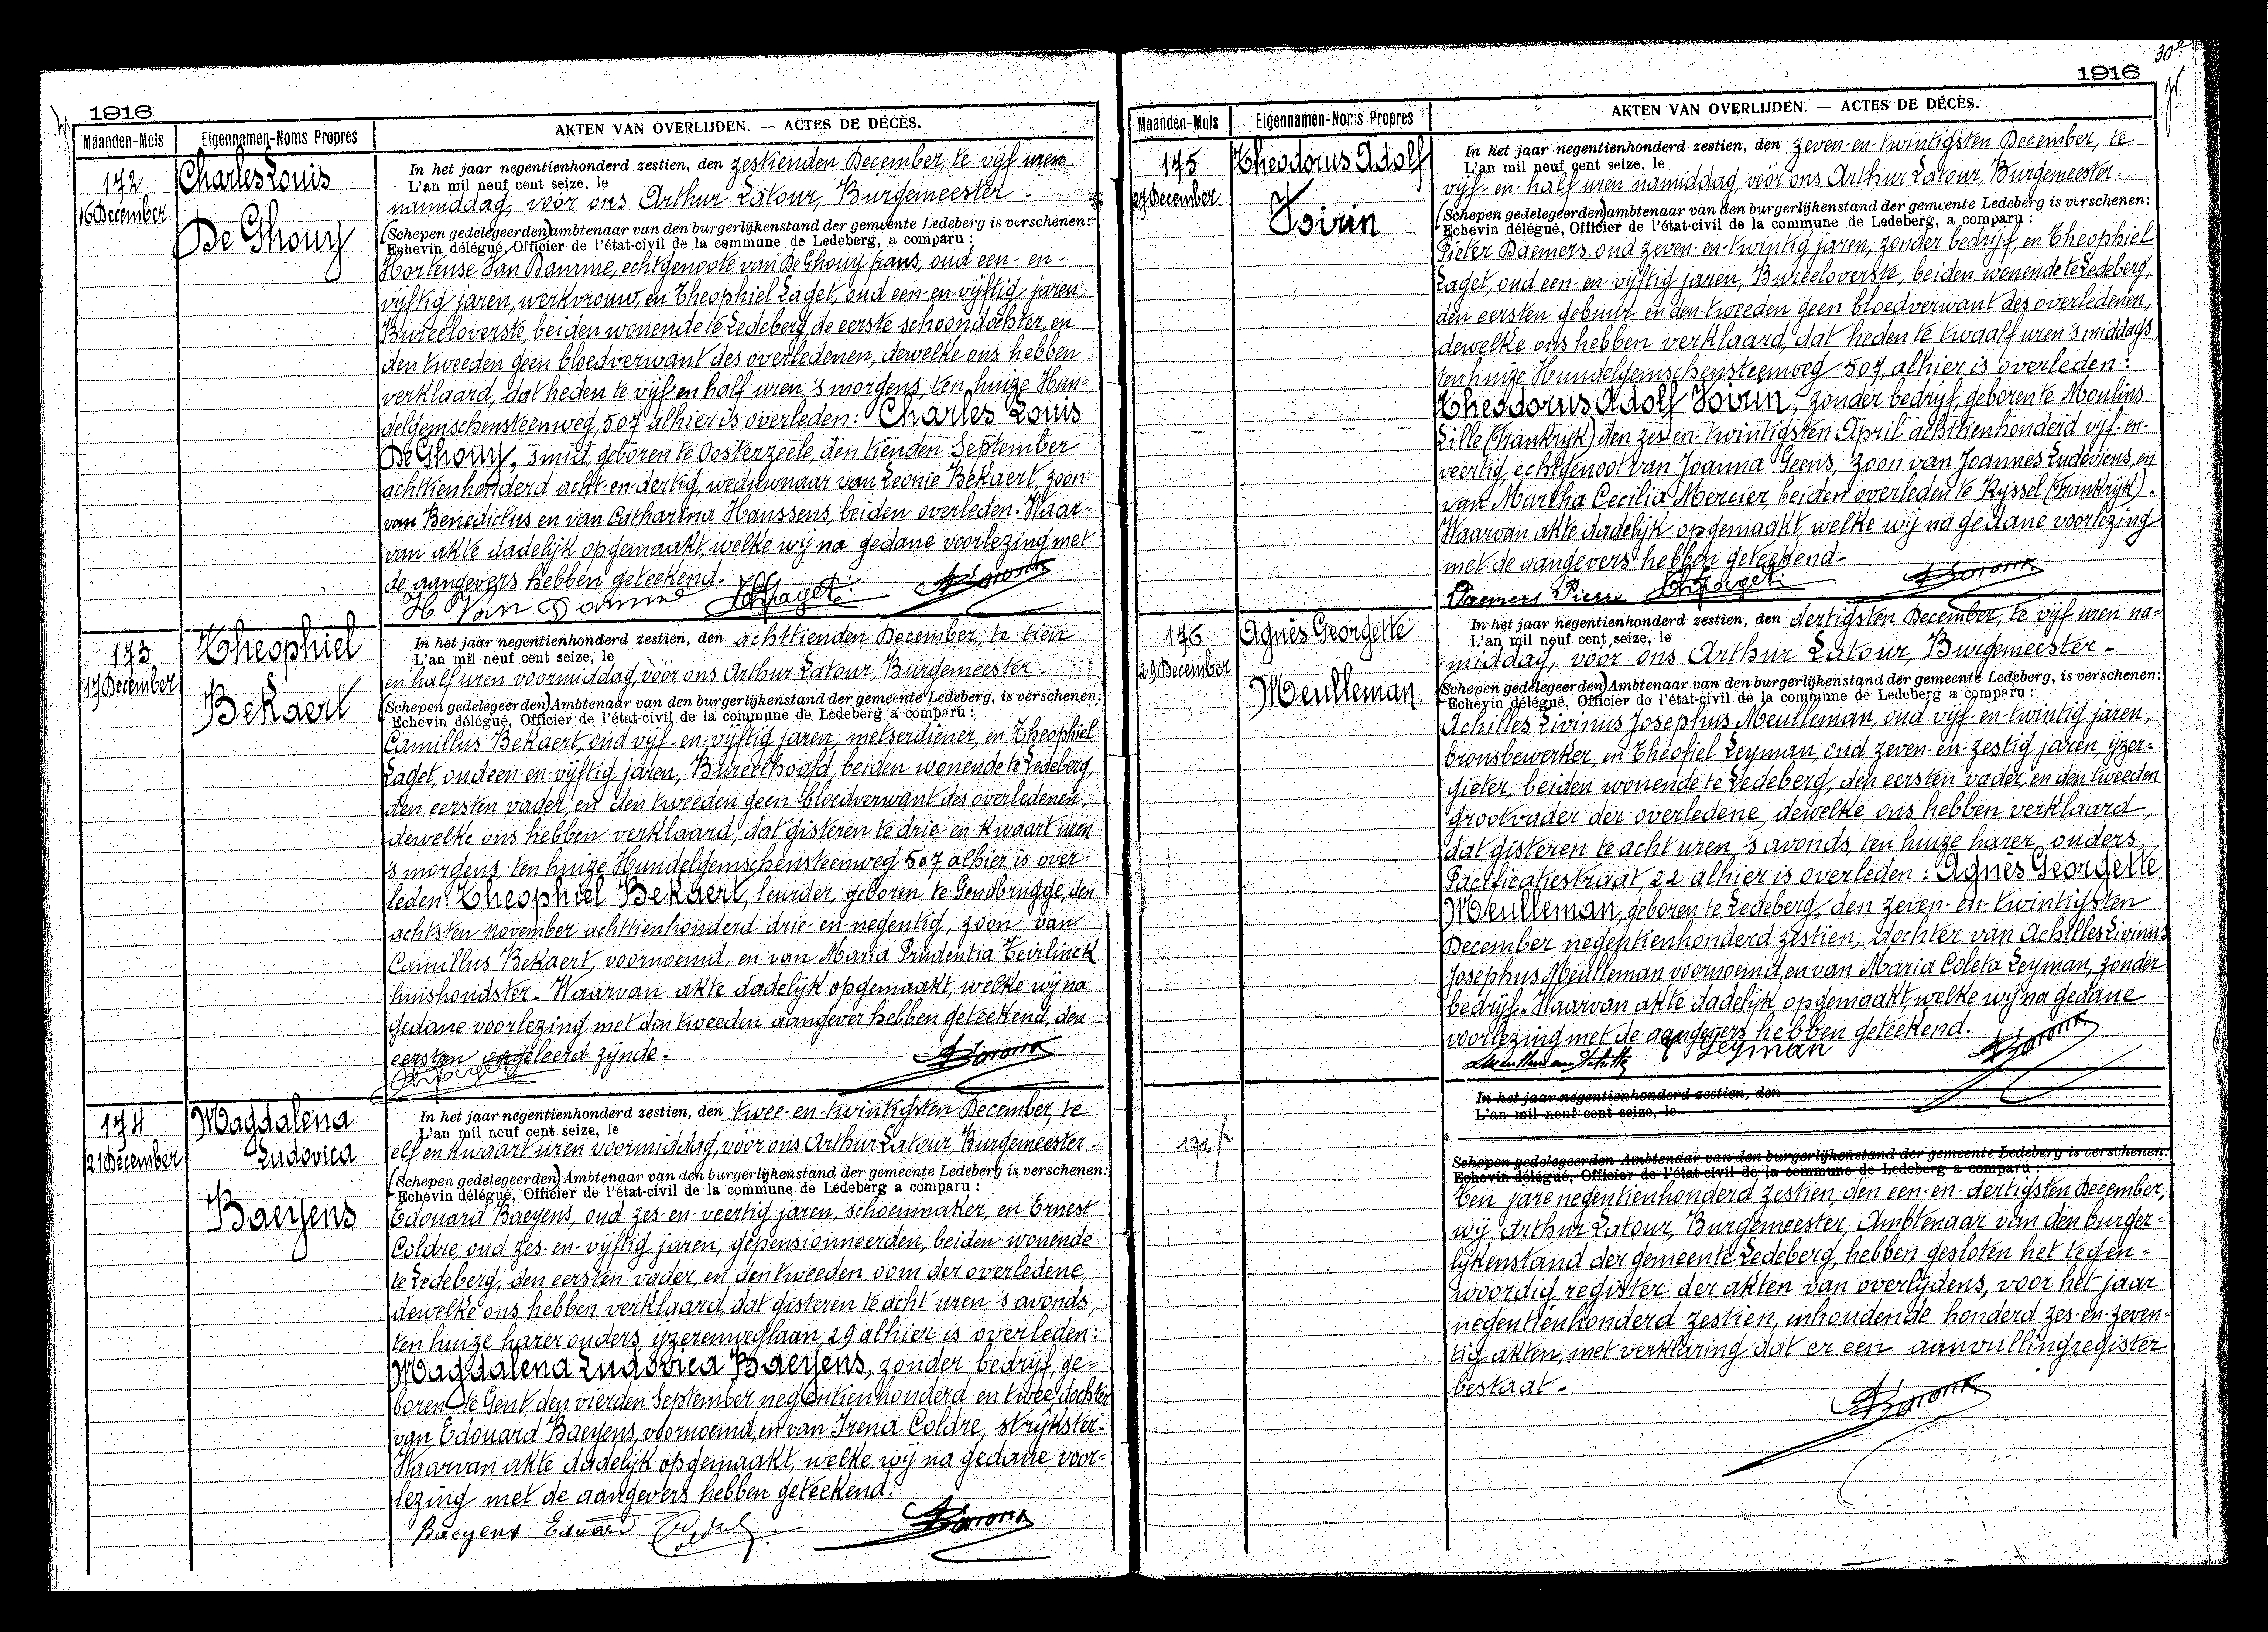 1916
Maanden-Mois
Eigennamen-Noms Propres
AKTEN VAN OVERLIJDEN. — ACTES DE DÉCÈS.
172
16 December
Charles Louis
De Ghouy
In het jaar negentienhonderd zestien, den zestienden December, te vijf uren
L'an mil neuf cent seize, le
namiddag, vóór ons Arthur Latour, Burgemeester -
(Schepen gedelegeerden) ambtenaar van den burgerlijkenstand der gemeente Ledeberg is verschenen:
Echevin délégué, Officier de l'état-civil de la commune de Ledeberg, a comparu :
Hortense Van Damme, echtgenoote van De Ghouy Frans, oud een- en-
vijftig jaren, werkvrouw, en Theophiel Laget, oud een-en-vijftig jaren,
Bureeloverste, beiden wonende te Ledeberg, de eerste schoondochter, en
den tweeden geen bloedverwant des overledenen, dewelke ons hebben
verklaard, dat heden te vijf en half uren 's morgens, ten huize Hun-
delgemschensteenweg, 507 alhier is overleden: Charles Louis
De Ghouy, smid, geboren te Oosterzeele, den tienden September
achttienhonderd acht-en-dertig, weduwnaar van Leonie Bekaert, zoon
van Benedictus en van Catharina Hanssens, beiden overleden. Waar-
van akte dadelijk opgemaakt, welke wij na gedane voorlezing met
de aangevers hebben geteekend.
H Van Damme
173
17 December
Theophiel
Bekaert
In het jaar negentienhonderd zestien, den achttienden December, te tien
L'an mil neuf cent seize, le
en half uren voormiddag, vóór ons Arthur Latour, Burgemeester -
(Schepen gedelegeerden) Ambtenaar van den burgerlijkenstand der gemeente Ledeberg, is verschenen:
Echevin délégué, Officier de l'état-civil de la commune de Ledeberg a comparu :
Camillus Bekaert, oud vijf-en-vijftig jaren, metserdiener, en Theophiel
Laget, oud een-en-vijftig jaren, Bureelhoofd, beiden wonende te Ledeberg,
den eersten vader, en den tweeden geen bloedverwant des overledenen,
dewelke ons hebben verklaard, dat gisteren te drie-en-kwaart uren
's morgens, ten huize Hundelgemschensteenweg 507, alhier is over-
leden: Theophiel Bekaert, leurder, geboren te Gendbrugge, den
achtsten november achttienhonderd drie-en-negentig, zoon van
Camillus Bekaert, voornoemd, en van Maria Prudentia Teirlinck
huishoudster. Waarvan akte dadelijk opgemaakt, welke wij na
gedane voorlezing met den tweeden aangever hebben geteekend, den
eersten ongeleerd zijnde.
174
21 December
Magdalena
Ludovica
Baeyens
In het jaar negentienhonderd zestien, den twee-en-twintigsten December, te
L'an mil neuf cent seize, le
elf en kwaart uren voormiddag, vóór ons Arthur Latour, Burgemeester -
(Schepen gedelegeerden) Ambtenaar van den burgerlijkenstand der gemeente Ledeberg is verschenen:
Echevin délégué, Officier de l'état-civil de la commune de Ledeberg a comparu :
Edouard Baeyens, oud zes-en-veertig jaren, schoenmaker, en Ernest
Coldre, oud zes-en-vijftig jaren, gepensionneerden, beiden wonende
te Ledeberg, den eersten vader, en den tweeden oom der overledene,
dewelke ons hebben verklaard, dat gisteren te acht uren 's avonds,
ten huize harer ouders, ijzerenweglaan, 29 alhier is overleden:
Magdalena Ludovica Baeyens, zonder bedrijf, ge-
boren te Gent, den vierden September negentienhonderd en twee, dochter
van Edouard Baeyens, voornoemd, en van Irena Coldre, strijkster.
Waarvan akte dadelijk opgemaakt, welke wij na gedane voor-
lezing met de aangevers hebben geteekend.
Baeyens Eduard
1916
Maanden-Mois
Eigennamen-Noms Propres
AKTEN VAN OVERLIJDEN. — ACTES DE DÉCÈS.
175
27 December
Theodorus Adolf
Voirin
In het jaar negentienhonderd zestien, den zeven-en-twintigsten December, te
L'an mil neuf cent seize, le
vijf-en-half uren namiddag, vóór ons Arthur Latour, Burgemeester -
(Schepen gedelegeerden) ambtenaar van den burgerlijkenstand der gemeente Ledeberg is verschenen:
Echevin délégué, Officier de l'état-civil de la commune de Ledeberg, a comparu :
Pieter Daemers, oud zeven-en-twintig jaren, zonder bedrijf, en Theophiel
Laget, oud een-en-vijftig jaren, Bureeloverste, beiden wonende te Ledeberg,
den eersten gebuur en den tweeden geen bloedverwant des overledenen,
dewelke ons hebben verklaard, dat heden te twaalf uren 's middags
ten huize Hundelgemschensteenweg 507, alhier is overleden:
Theodorus Adolf Voirin, zonder bedrijf, geboren te Moulins
Lille (Frankrijk) den zes en-twintigsten April achttienhonderd vijf-en-
veertig, echtgenoot van Joanna Geens, zoon van Joannes Ludovicus, en
van Martha Cecilia Mercier, beiden overleden te Ryssel (Frankrijk).
Waarvan akte dadelijk opgemaakt, welke wij na gedane voorlezing
met de aangevers hebben geteekend-
Daemers Pierre
176
29 December
Agnès Georgette
Meulleman
In het jaar negentienhonderd zestien, den dertigsten December, te vijf uren na-
L'an mil neuf cent seize, le
middag, vóór ons Arthur Latour, Burgemeester -
(Schepen gedelegeerden) Ambtenaar van den burgerlijkenstand der gemeente Ledeberg, is verschenen:
Echevin délégué, Officier de l'état-civil de la commune de Ledeberg a comparu :
Achilles Livinus Josephus Meulleman, oud vijf-en-twintig jaren,
bronsbewerker, en Théofiel Leyman, oud zeven-en-zestig jaren, ijzer-
gieter, beiden wonende te Ledeberg, den eersten vader, en den tweeden
grootvader der overledene, dewelke ons hebben verklaard,
dat gisteren te acht uren 's avonds, ten huize harer ouders
Pacificatiestraat, 22 alhier is overleden: Agnès Georgette
Meulleman, geboren te Ledeberg, den zeven-en-twintigsten
December negentienhonderd zestien, dochter van Achilles Livinus
Josephus Meulleman voornoemd, en van Maria Coleta Leyman, zonder
bedrijf. Waarvan akte dadelijk opgemaakt, welke wij na gedane
voorlezing met de aangevers hebben geteekend.
Leyman
In het jaar negentienhonderd zestien, den
L'an mil neuf cent seize, le
Schepen gedelegeerden Ambtenaar van den burgerlijkenstand der gemeente Ledeberg is verschenen:
Echevin délégué, Officier de l'état-civil de la commune de Ledeberg a comparu :
Ten jare negentienhonderd zestien, den een-en-dertigsten December,
wij Arthur Latour, Burgemeester, Ambtenaar van den burger-
lijkenstand der gemeente Ledeberg, hebben gesloten het tegen-
woordig register der akten van overlijdens, voor het jaar
negentienhonderd zestien, inhoudende honderd zes-en-zeven-
tig akten, met verklaring dat er een aanvullingregister
bestaat.